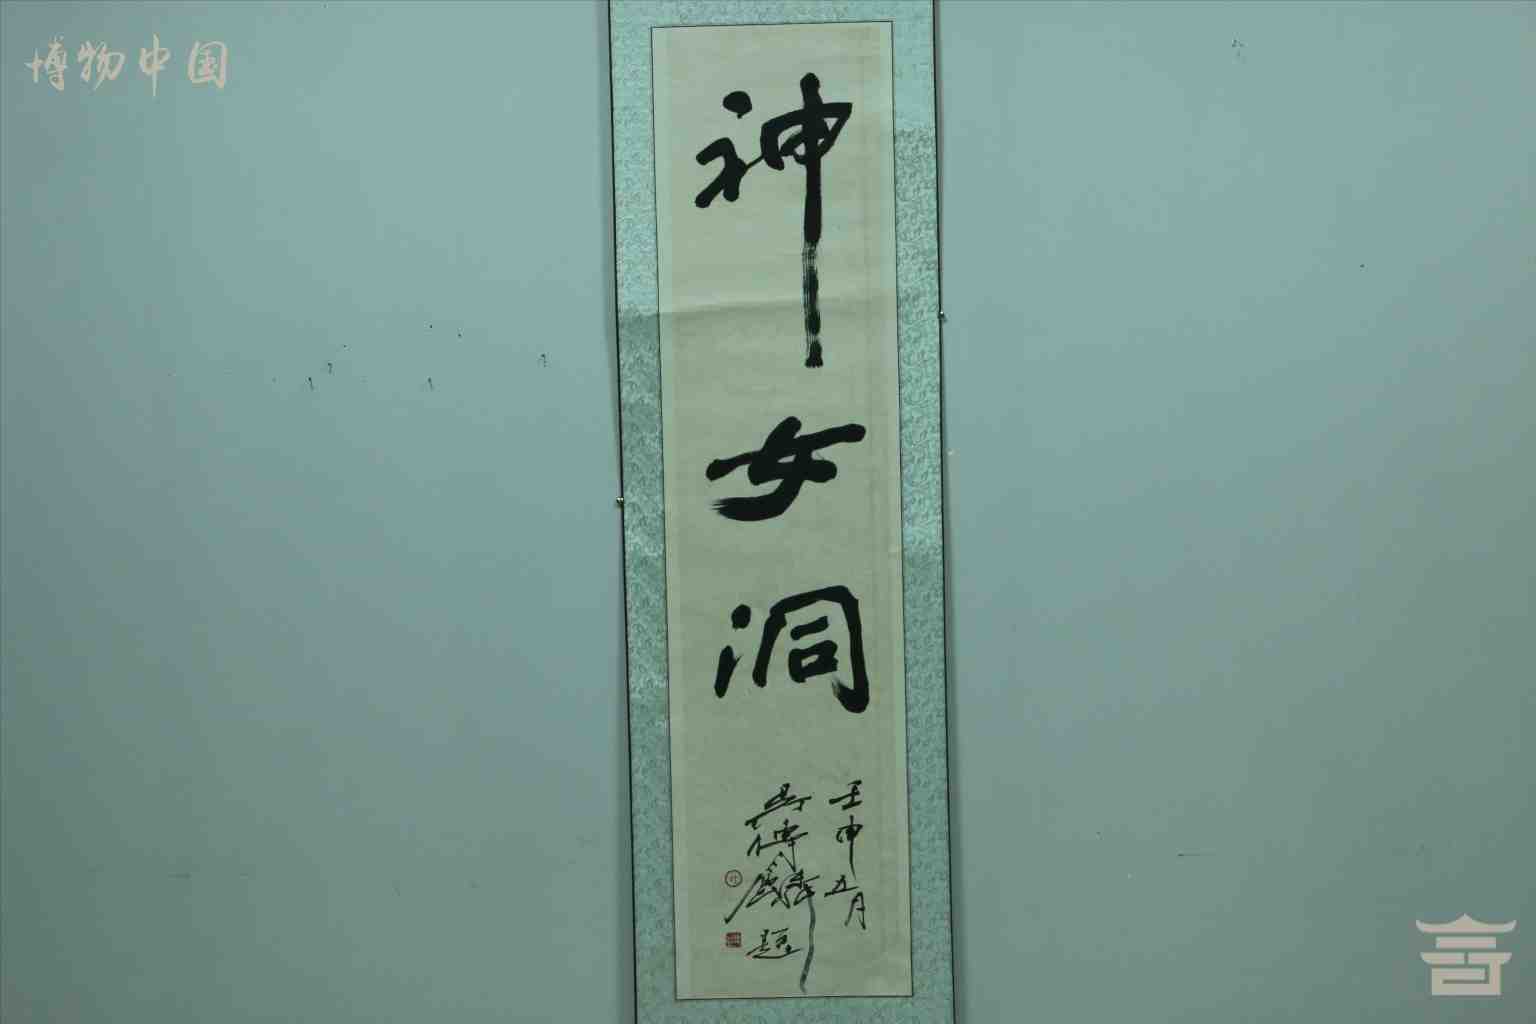 博物中国
神女洞
壬申五月
吴传麟题